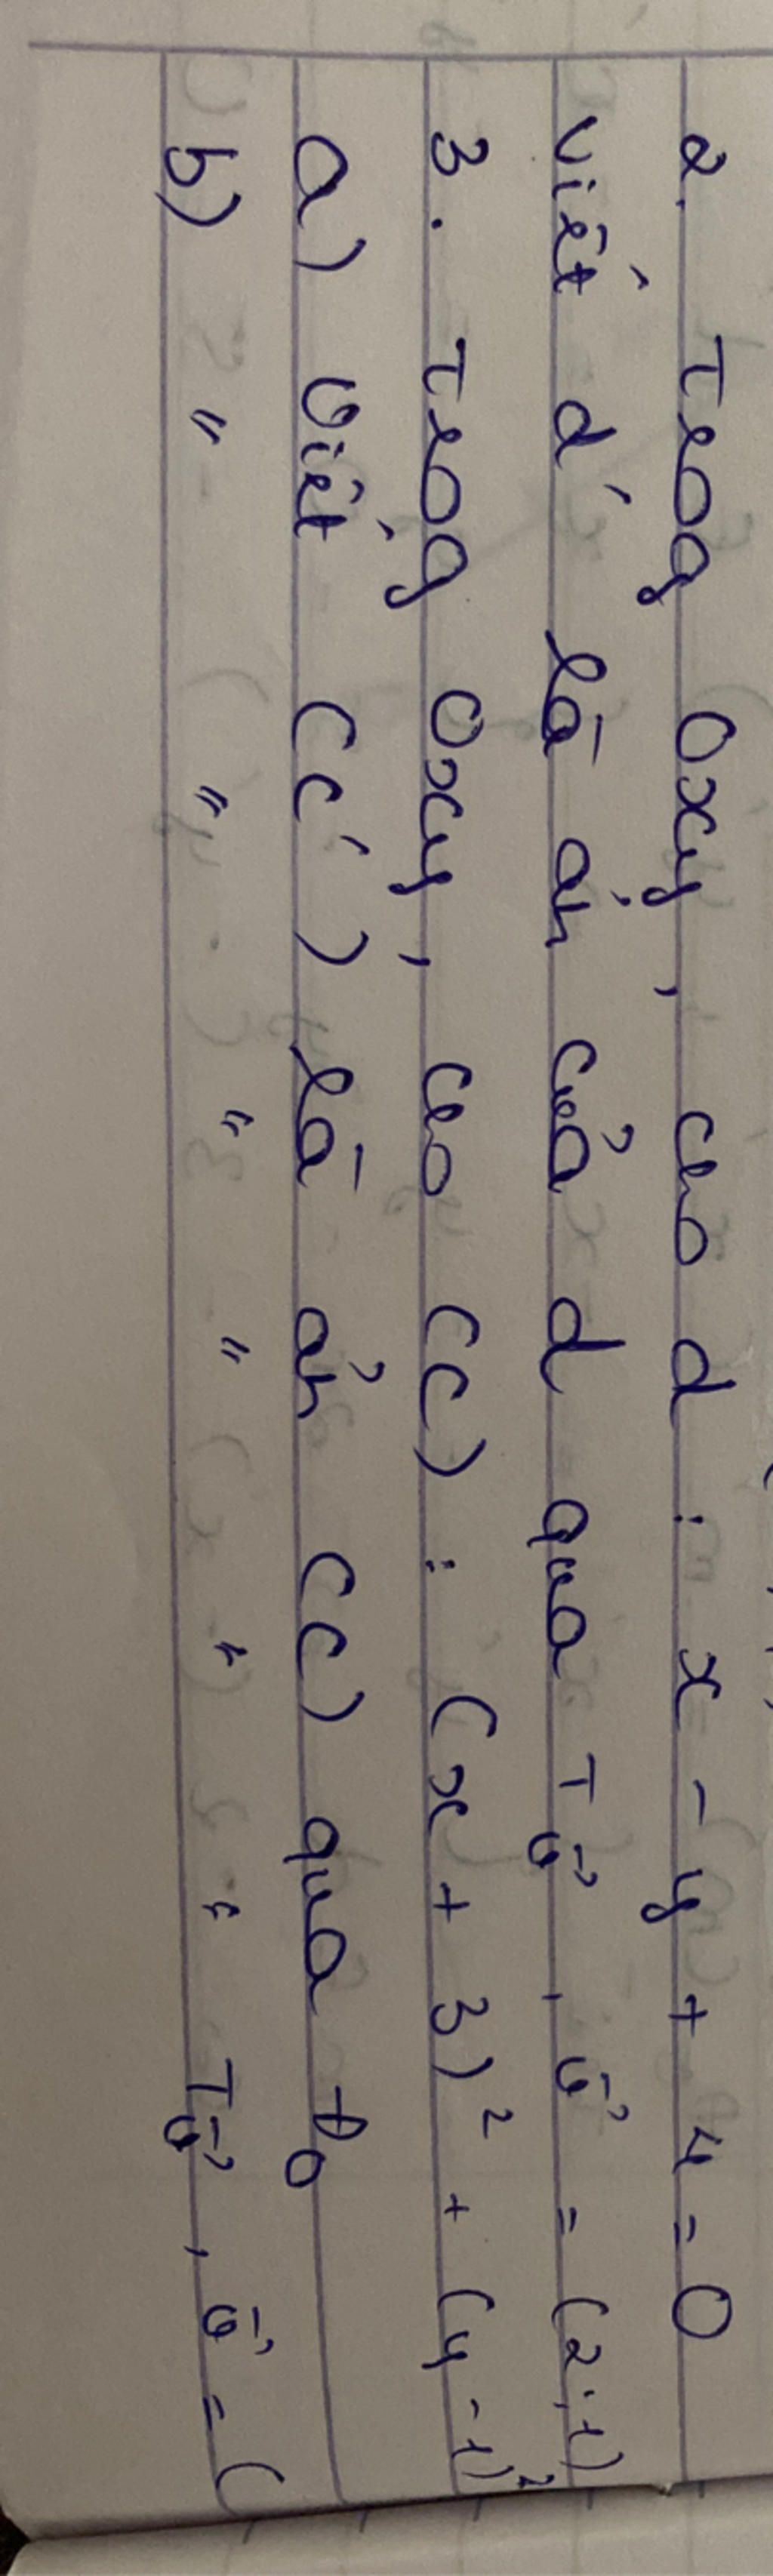 2. Trog Oxy, cho d : x - y + 4 = 0
Viết d' là ảh của d qua Tv⃗, v⃗ = (2;1)
3. Trog Oxy, cho (C) : (x + 3)² + (y - 1)²
a) Viết (C') là ảh (C) qua Đo
b) " " " " " " Tv⃗, v⃗ = (